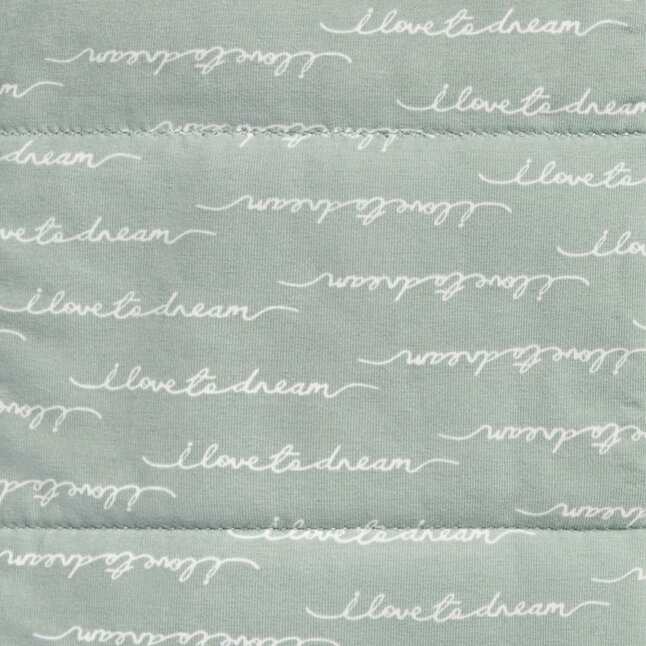 i love to dream
i love to dream
i love to dream
i love to dream
i love to
i love to dream
love to dream
i lo
i love to dream
i love to dream
i love to dream
i love to dream
i lov
i love to dream
i love to dream
i love to
i love to dream
i love to dream
i love to dream
i love to dream